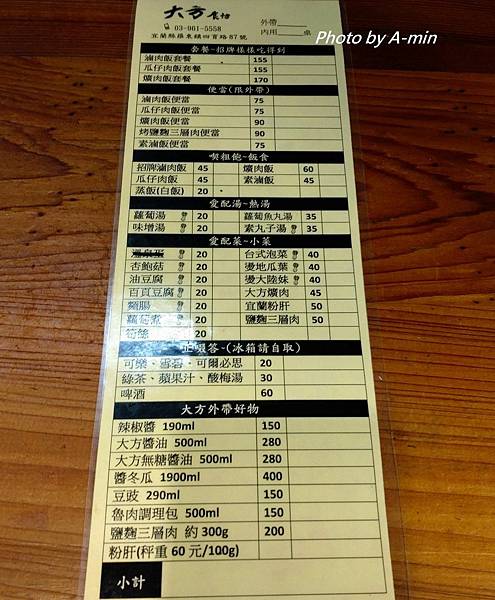 大方食坊
03-961-5558
宜蘭縣羅東鎮四育路87號
外帶
內用 桌
Photo by A-min
套餐~招牌樣樣吃得到
滷肉飯套餐 155
瓜仔肉飯套餐 155
爌肉飯套餐 170
便當(限外帶)
滷肉飯便當 75
瓜仔肉飯便當 75
爌肉飯便當 90
烤鹽麴三層肉便當 90
素滷飯便當 75
喫粗飽~飯食
招牌滷肉飯 45 爌肉飯 60
瓜仔肉飯 45 素滷飯 45
蒸飯(白飯) 20
愛配湯~熱湯
蘿蔔湯 20 蘿蔔魚丸湯 35
味增湯 20 素丸子湯 35
愛配菜~小菜
溫泉蛋 20 台式泡菜 40
杏鮑菇 20 燙地瓜葉 40
油豆腐 20 燙大陸妹 40
百頁豆腐 20 大方爌肉 45
麵腸 20 宜蘭粉肝 50
蘿蔔煮 20 鹽麴三層肉 50
筍絲 20
止嘴答~(冰箱請自取)
可樂、雪碧、可爾必思 20
綠茶、蘋果汁、酸梅湯 30
啤酒 60
大方外帶好物
辣椒醬 190ml 150
大方醬油 500ml 280
大方無糖醬油 500ml 280
醬冬瓜 1900ml 400
豆豉 290ml 150
魯肉調理包 500ml 150
鹽麴三層肉 約300g 200
粉肝(秤重 60 元/100g)
小計